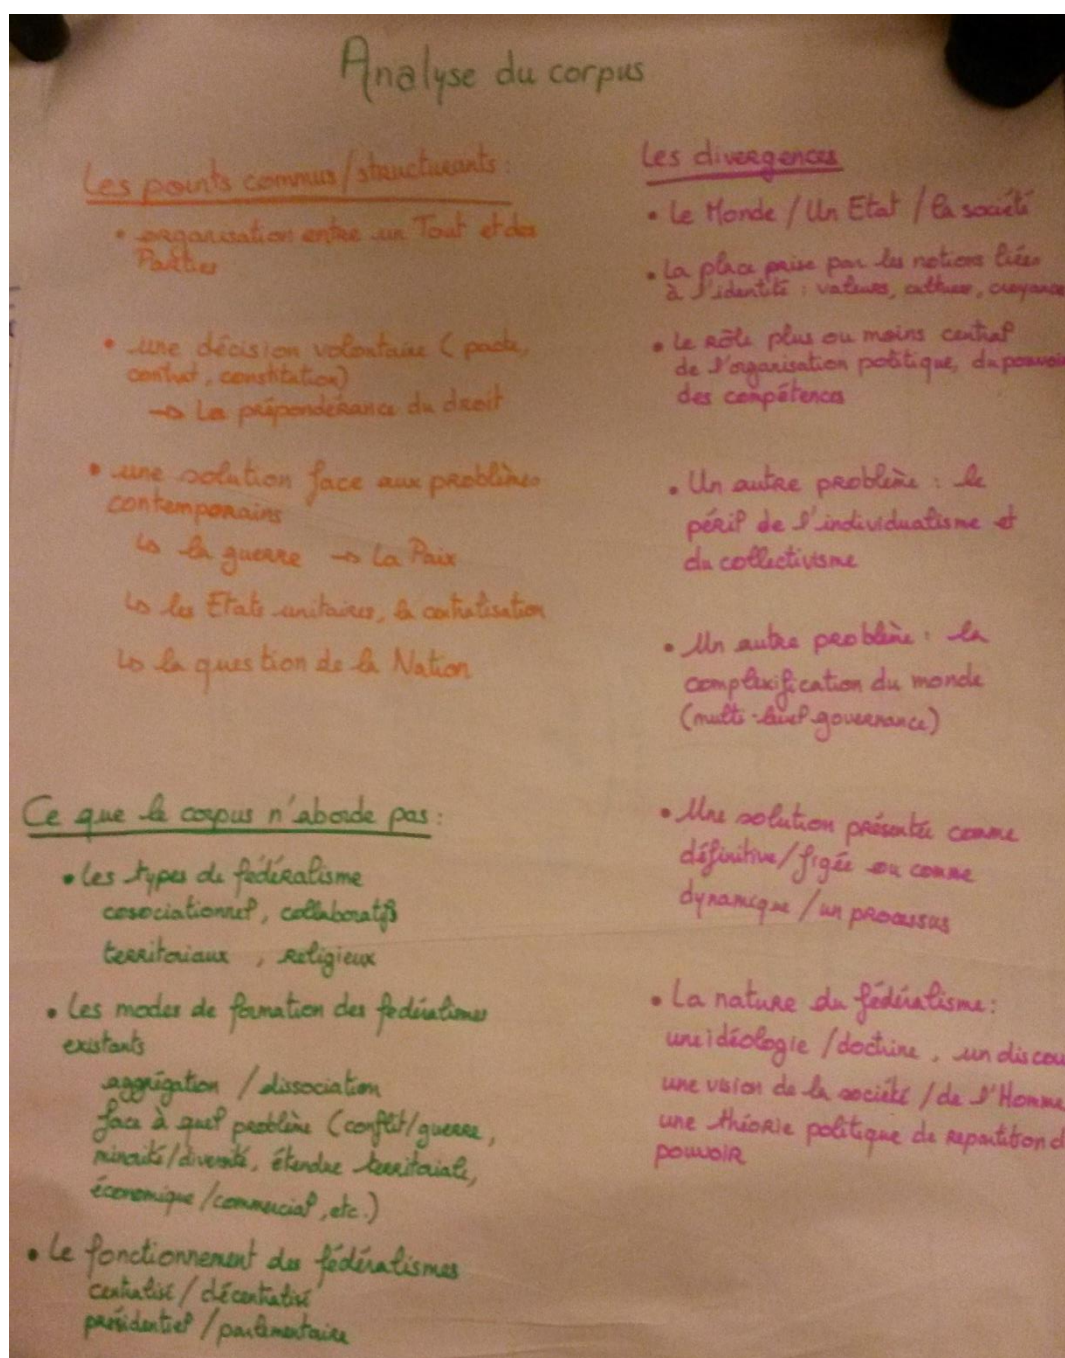 Analyse du corpus
Les points communs/structurants :
• organisation entre un Tout et des
Parties
• une décision volontaire (pacte,
contrat, constitution)
→ La prépondérance du droit
• une solution face aux problèmes
contemporains
↳ la guerre → La Paix
↳ les Etats unitaires, la centralisation
↳ la question de la Nation
Ce que le corpus n'aborde pas :
• Les types de fédéralisme
cosociationnel, collaboratifs
territoriaux , religieux
• Les modes de formation des fedéralismes
existants
aggrégation / dissociation
face à quel problème (conflit/guerre,
minorité/diversité, étendue territoriale,
économique/commercial, etc.)
• Le fonctionnement des fédéralismes
centralisé / décentralisé
présidentiel / parlementaire
Les divergences
• Le Monde / Un Etat / la société
• La place prise par les notions liées
à l'identité : valeurs, culture, croyance
• Le rôle plus ou moins central
de l'organisation politique, du pouvoir
des compétences
• Un autre problème : le
péril de l'individualisme et
du collectivisme
• Un autre problème : la
complexification du monde
(multi-level governance)
• Une solution présentée comme
définitive/figée ou comme
dynamique / un processus
• La nature du fédéralisme :
une idéologie / doctrine, un discou
une vision de la société / de l'Homme
une théorie politique de repartition d
pouvoir